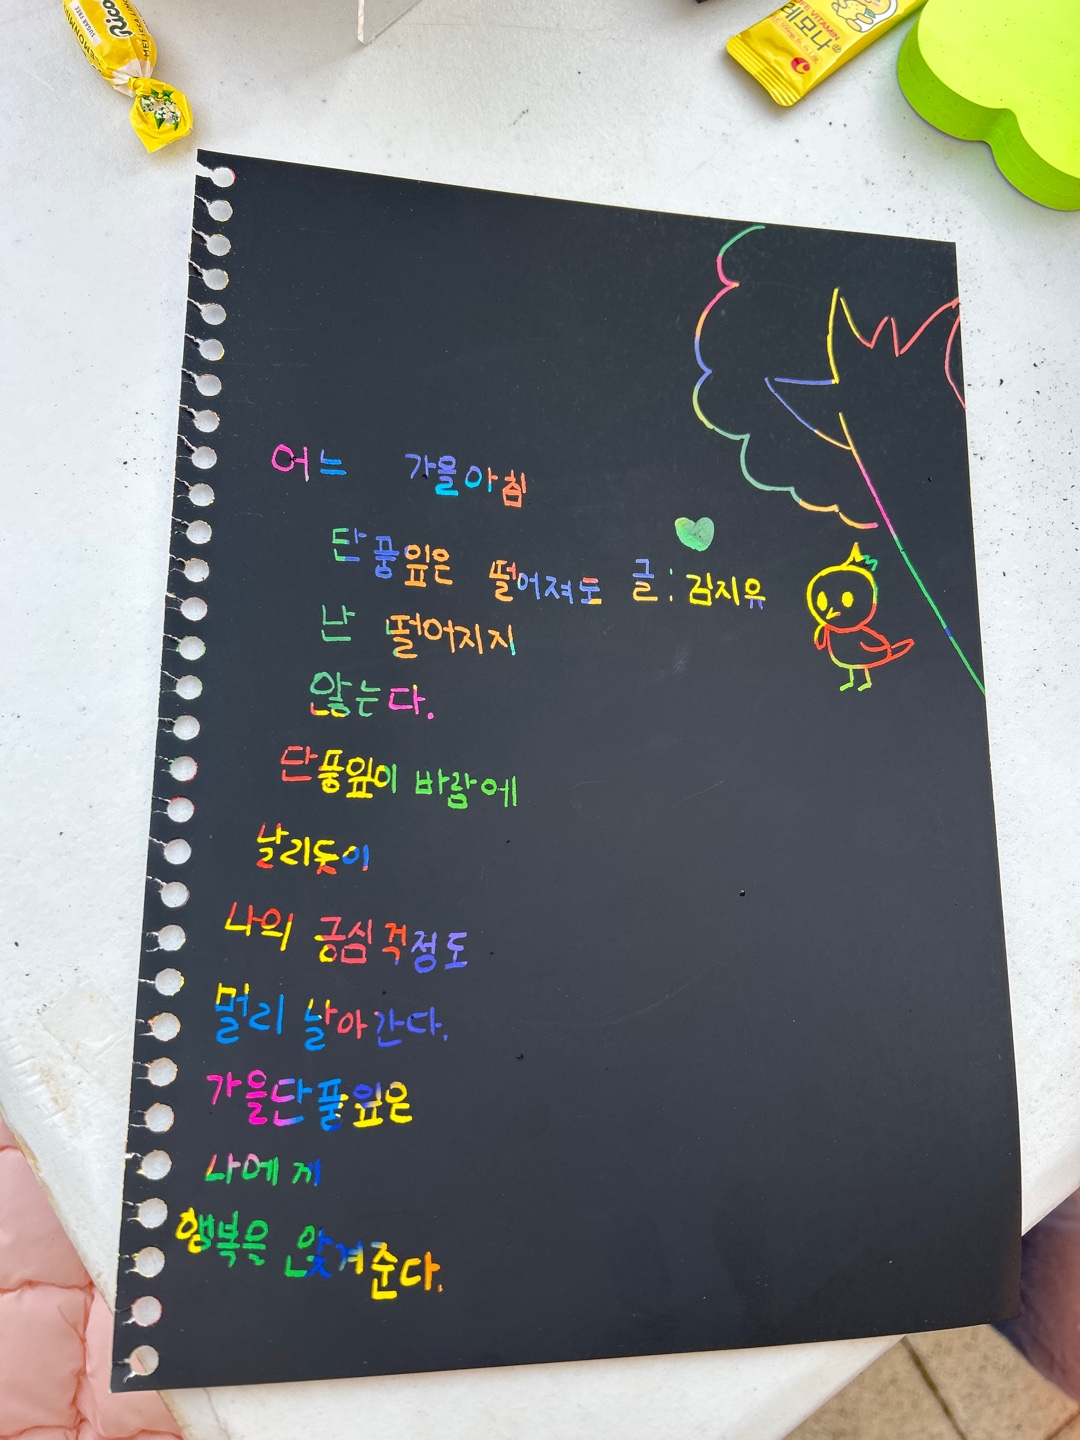 Rico
SUGAR FREE
VITAMIN
레모나
어느 가을아침
단풍잎은 떨어져도
글: 김지유
난 떨어지지
않는다.
단풍잎이 바람에
날리듯이
나의 긍심걱정도
멀리 날아간다.
가을단풍잎은
나에게
행복을 안겨준다.